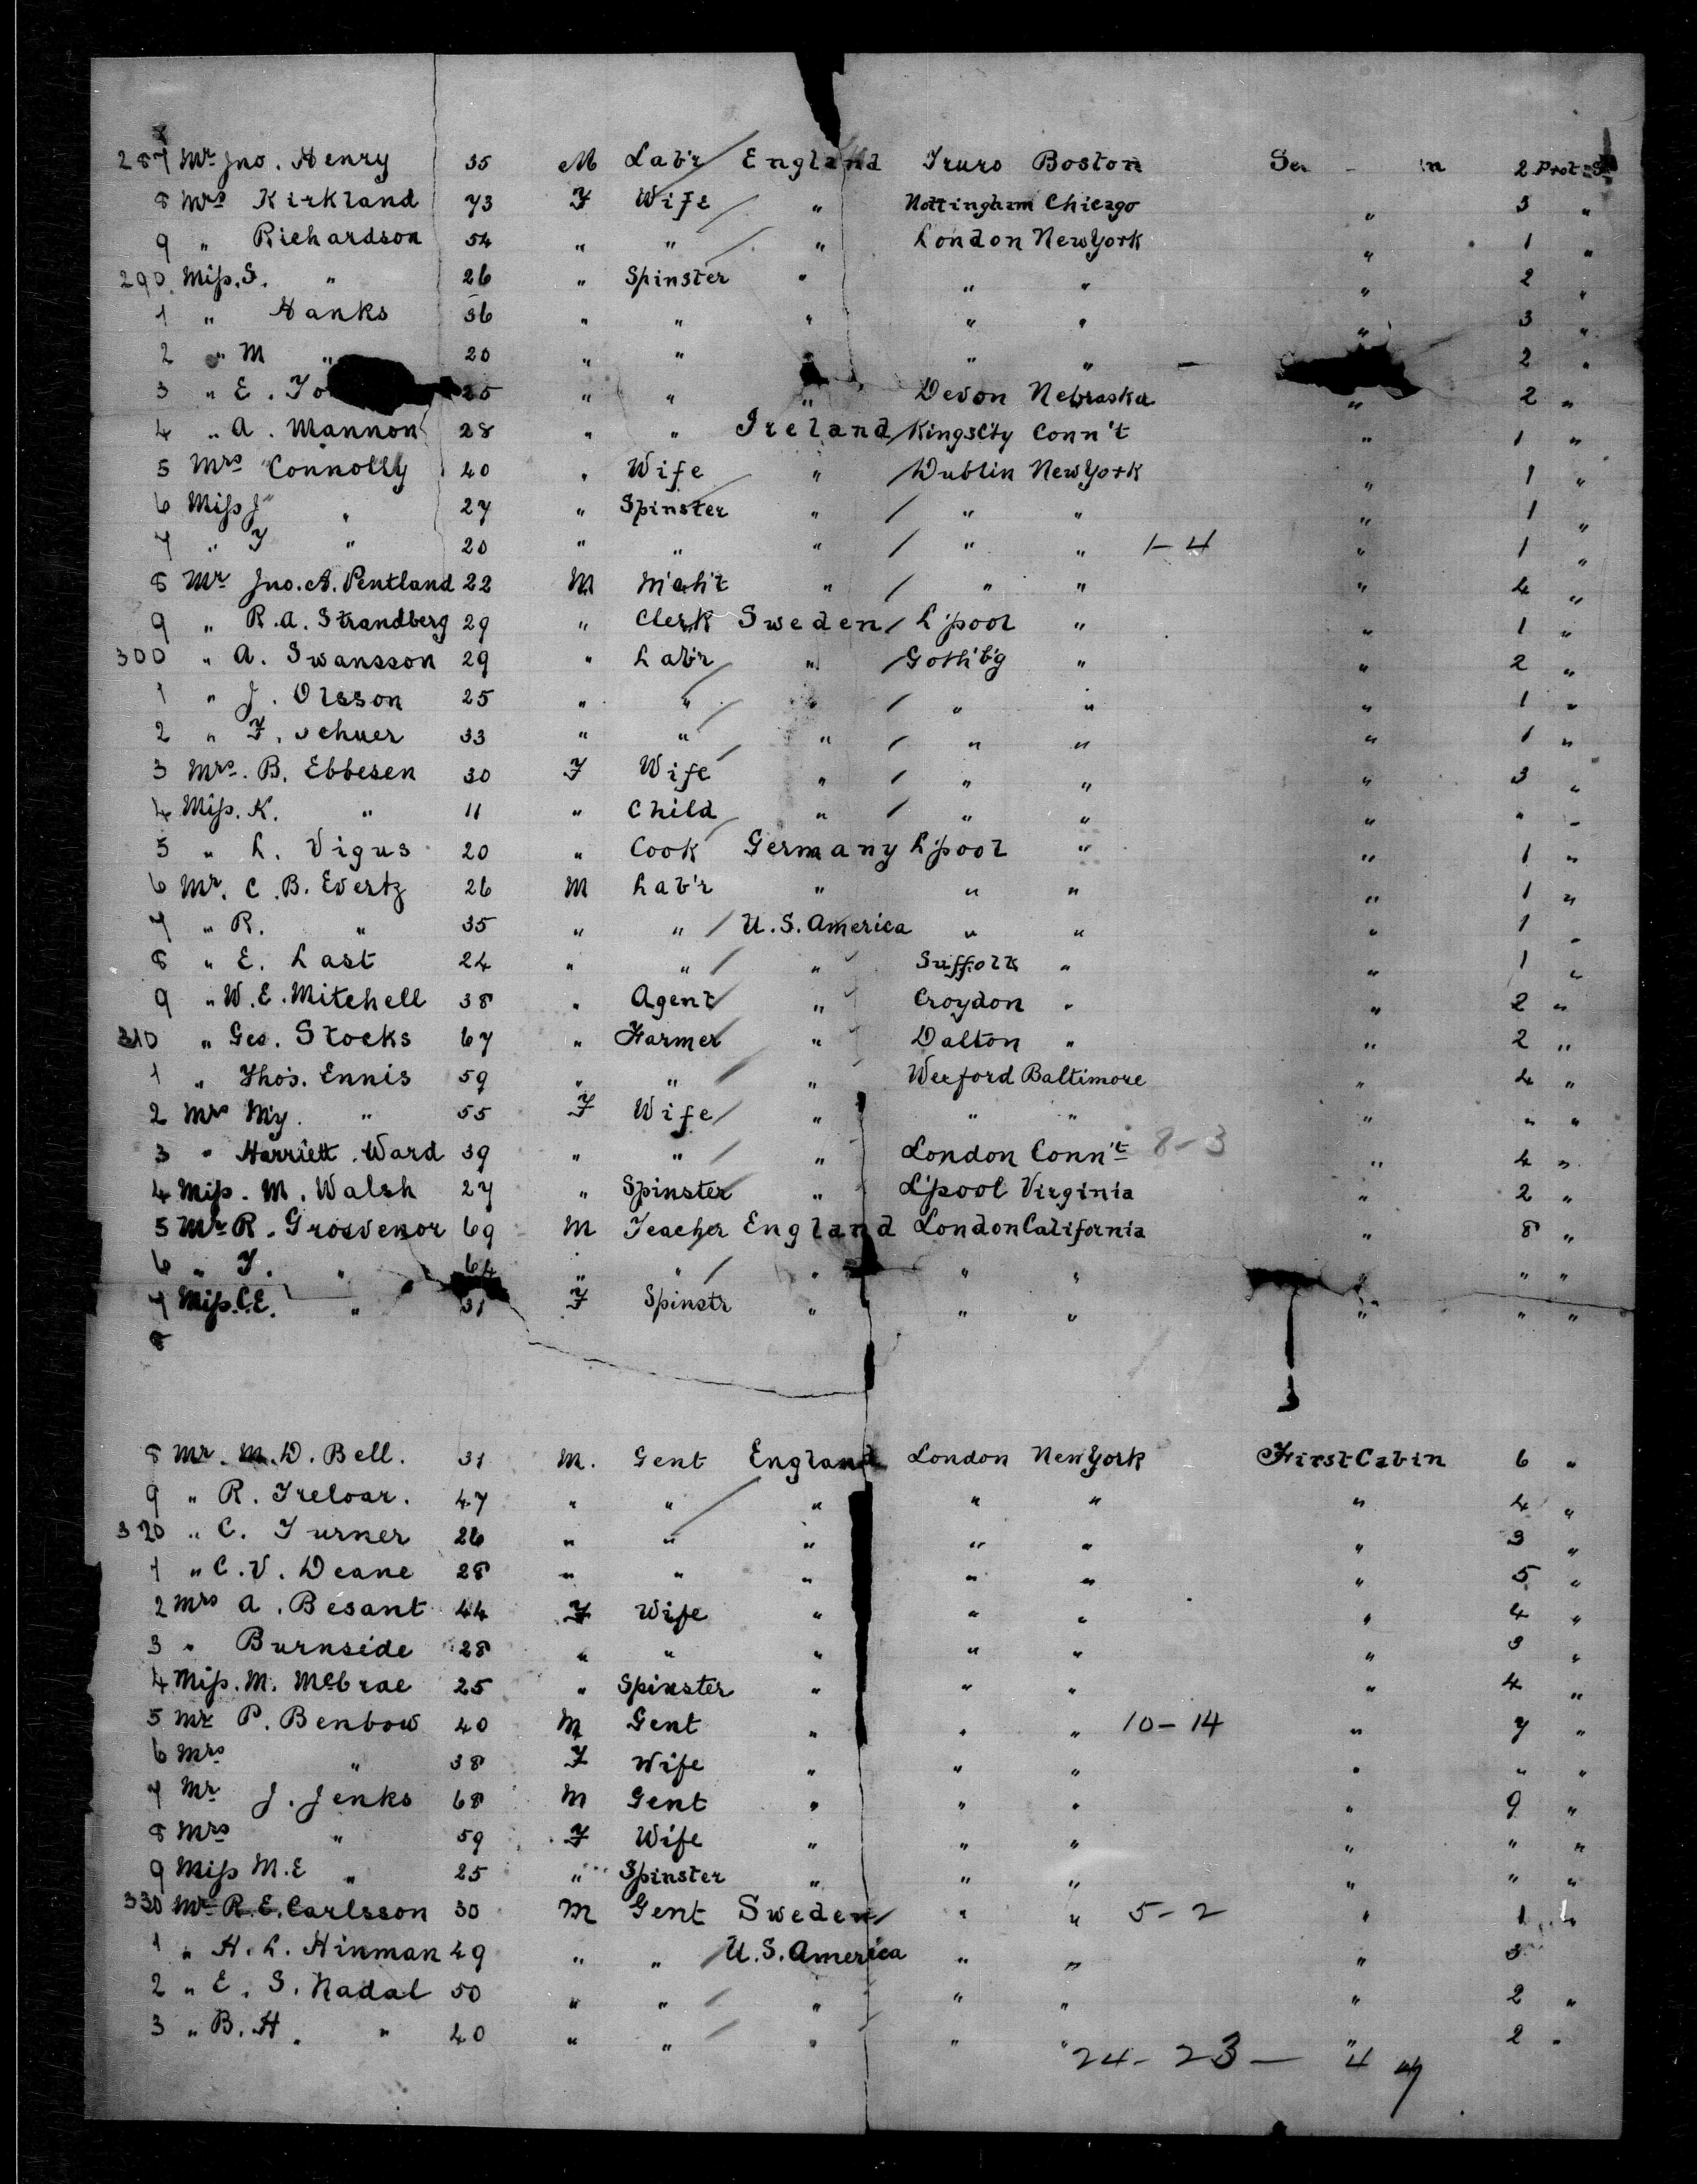 287 Mr Jno. Henry 35 M Lab'r England Truro Boston 2 Prot
8 Mrs Kirkland 73 F Wife " Nottingham Chicago " 3 "
9 " Richardson 54 " " " London New York " 1 "
290 Miss. S. " 26 " Spinster " " " " 2 "
1 " Hanks 36 " " " " " " 3 "
2 " M " 20 " " " " " 2 "
3 " E. 25 " " " Devon Nebraska " 2 "
4 " A. Mannon 28 " " Ireland KingsCity Conn't " 1 "
5 Mrs Connolly 40 " Wife " Dublin New York " 1 "
6 Miss J " 27 " Spinster " " " " 1 "
7 " F " 20 " " " " " 1-4 " 1 "
8 Mr Jno. A. Pentland 22 M M'ch't " " " " 4 "
9 " R. A. Strandberg 29 " Clerk Sweden L'pool " " 1 "
300 " A. Swansson 29 " Lab'r " Goth'b'g " " 2 "
1 " J. Olsson 25 " " " " " " 1 "
2 " F. Schuer 33 " " " " " " 1 "
3 Mrs. B. Ebbesen 30 F Wife " " " " 3 "
4 Miss. K. " 11 " Child " " " " " "
5 " L. Vigus 20 " Cook Germany L'pool " " 1 "
6 Mr. C. B. Evertz 26 M Lab'r " " " " 1 "
7 " R. " 35 " " U.S. America " " " 1 "
8 " E. Last 24 " " " Suffolk " " 1 "
9 " W. E. Mitchell 38 " Agent " Croydon " " 2 "
310 " Geo. Stocks 67 " Farmer " Dalton " " 2 "
1 " Thos. Ennis 59 " " " Wexford Baltimore " 4 "
2 Mrs My. " 55 F Wife " " " " " "
3 " Harriett. Ward 39 " " " London Conn't 8-3 " 4 "
4 Miss. M. Walsh 27 " Spinster " L'pool Virginia " 2 "
5 Mr R. Grosvenor 69 M Teacher England London California " 8 "
6 " F. " 64 " " " " " " " "
7 Miss. C.E. " 31 F Spinstr " " " " " "
8
8 Mr. M. D. Bell. 31 M. Gent England London New York First Cabin 6 "
9 " R. Treloar. 47 " " " " " " 4 "
320 " C. Turner 26 " " " " " " 3 "
1 " C. V. Deane 28 " " " " " " 5 "
2 Mrs A. Besant 44 F Wife " " " " 4 "
3 " Burnside 28 " " " " " " 3 "
4 Miss. M. McCrae 25 " Spinster " " " " 4 "
5 Mr P. Benbow 40 M Gent " " " 10-14 " 7 "
6 Mrs " 38 F Wife " " " " " "
7 Mr J. Jenks 68 M Gent " " " " 9 "
8 Mrs " 59 F Wife " " " " " "
9 Miss M.E " 25 " Spinster " " " " " "
330 Mr R. E. Carlsson 30 M Gent Sweden " " 5-2 " 1 "
1 " H. L. Hinman 49 " " U.S. America " " " 3
2 " E. S. Nadal 50 " " " " " " 2 "
3 " B. H. " 40 " " " " " " 2 "
24-23- 47